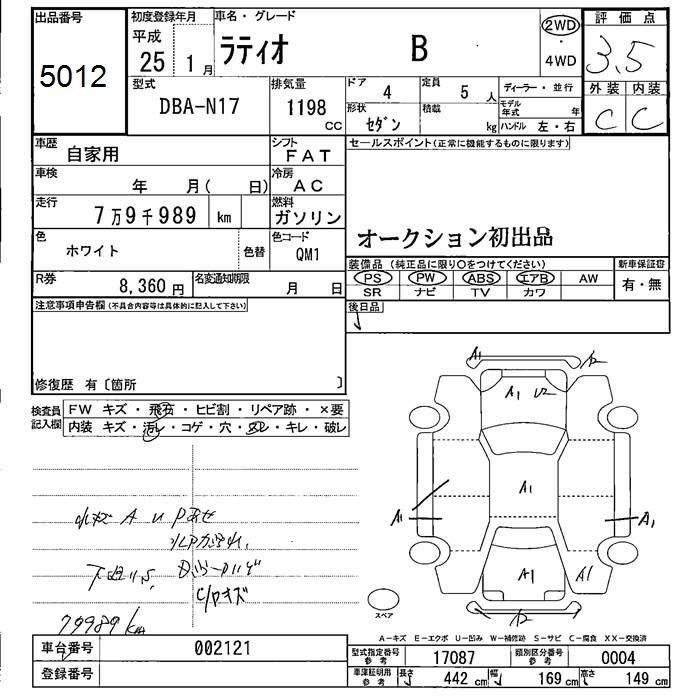 出品番号
5012
初度登録年月
平成
25 1月
車名・グレード
ラティオ B
2WD
・
4WD
評価点
3.5
外装 内装
C C
型式
DBA-N17
排気量
1198
CC
ドア 4
定員 5 人
ディーラー・並行
形状 セダン
積載 kg
モデル年式 年
ハンドル 左・右
車歴 自家用
シフト FAT
車検 年 月( 日)
冷房 AC
走行 7万9千989 km
燃料 ガソリン
色 ホワイト 色替
色コード QM1
R券 8,360円
名変通知期限 月 日
セールスポイント(正常に機能するものに限ります)
オークション初出品
装備品(純正品に限り○をつけてください)
PS PW ABS エアB AW
SR ナビ TV カワ
新車保証書
有・無
後日品
注意事項申告欄(不具合内容等は具体的に記入して下さい)
修復歴 有〔箇所 〕
検査員
記入欄
FW キズ・飛石・ヒビ割・リペア跡・×要
内装 キズ・汚レ・コゲ・穴・スレ・キレ・破レ
79989km
A1
A1 U2
A1
A1
A1
A1
A1
スペア
A-キズ E-エクボ U-凹み W-補修跡 S-サビ C-腐食 XX-交換済
車台番号 002121
登録番号
型式指定番号 参考 17087
類別区分番号 参考 0004
車庫証明用 参考 長さ 442cm 幅 169cm 高さ 149cm